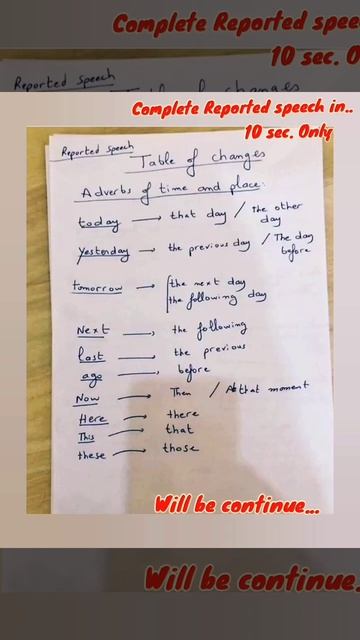 Complete Reported spee
10 sec. O
Reported speech
changes
Complete Reported speech in..
10 sec. Only
Reported speech
Table of changes
Adverbs of time and place:
today → that day / the other day
yesterday → the previous day / The day before
tomorrow → the next day
the following day
Next → the following
last → the previous
ago → before
Now → Then / At that moment
Here → there
This → that
these → those
Will be continue...
Will be continue.